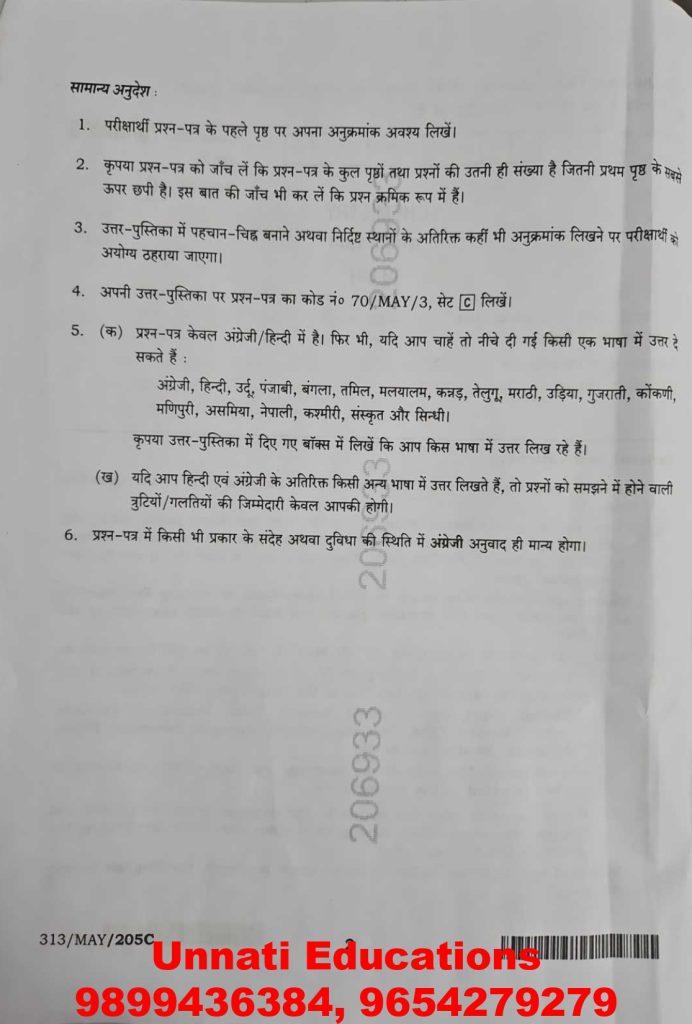 सामान्य अनुदेश :
1. परीक्षार्थी प्रश्न-पत्र के पहले पृष्ठ पर अपना अनुक्रमांक अवश्य लिखें।
2. कृपया प्रश्न-पत्र को जाँच लें कि प्रश्न-पत्र के कुल पृष्ठों तथा प्रश्नों की उतनी ही संख्या है जितनी प्रथम पृष्ठ के सबसे
ऊपर छपी है। इस बात की जाँच भी कर लें कि प्रश्न क्रमिक रूप में हैं।
3. उत्तर-पुस्तिका में पहचान-चिह्न बनाने अथवा निर्दिष्ट स्थानों के अतिरिक्त कहीं भी अनुक्रमांक लिखने पर परीक्षार्थी को
अयोग्य ठहराया जाएगा।
4. अपनी उत्तर-पुस्तिका पर प्रश्न-पत्र का कोड नं० 70/MAY/3, सेट C लिखें।
5. (क) प्रश्न-पत्र केवल अंग्रेजी/हिन्दी में है। फिर भी, यदि आप चाहें तो नीचे दी गई किसी एक भाषा में उत्तर दे
सकते हैं :
अंग्रेजी, हिन्दी, उर्दू, पंजाबी, बंगला, तमिल, मलयालम, कन्नड़, तेलुगू, मराठी, उड़िया, गुजराती, कोंकणी,
मणिपुरी, असमिया, नेपाली, कश्मीरी, संस्कृत और सिन्धी।
कृपया उत्तर-पुस्तिका में दिए गए बॉक्स में लिखें कि आप किस भाषा में उत्तर लिख रहे हैं।
(ख) यदि आप हिन्दी एवं अंग्रेजी के अतिरिक्त किसी अन्य भाषा में उत्तर लिखते हैं, तो प्रश्नों को समझने में होने वाली
त्रुटियों/गलतियों की जिम्मेदारी केवल आपकी होगी।
6. प्रश्न-पत्र में किसी भी प्रकार के संदेह अथवा दुविधा की स्थिति में अंग्रेजी अनुवाद ही मान्य होगा।
206933
206933
206933
313/MAY/205C
2
Unnati Educations
9899436384, 9654279279